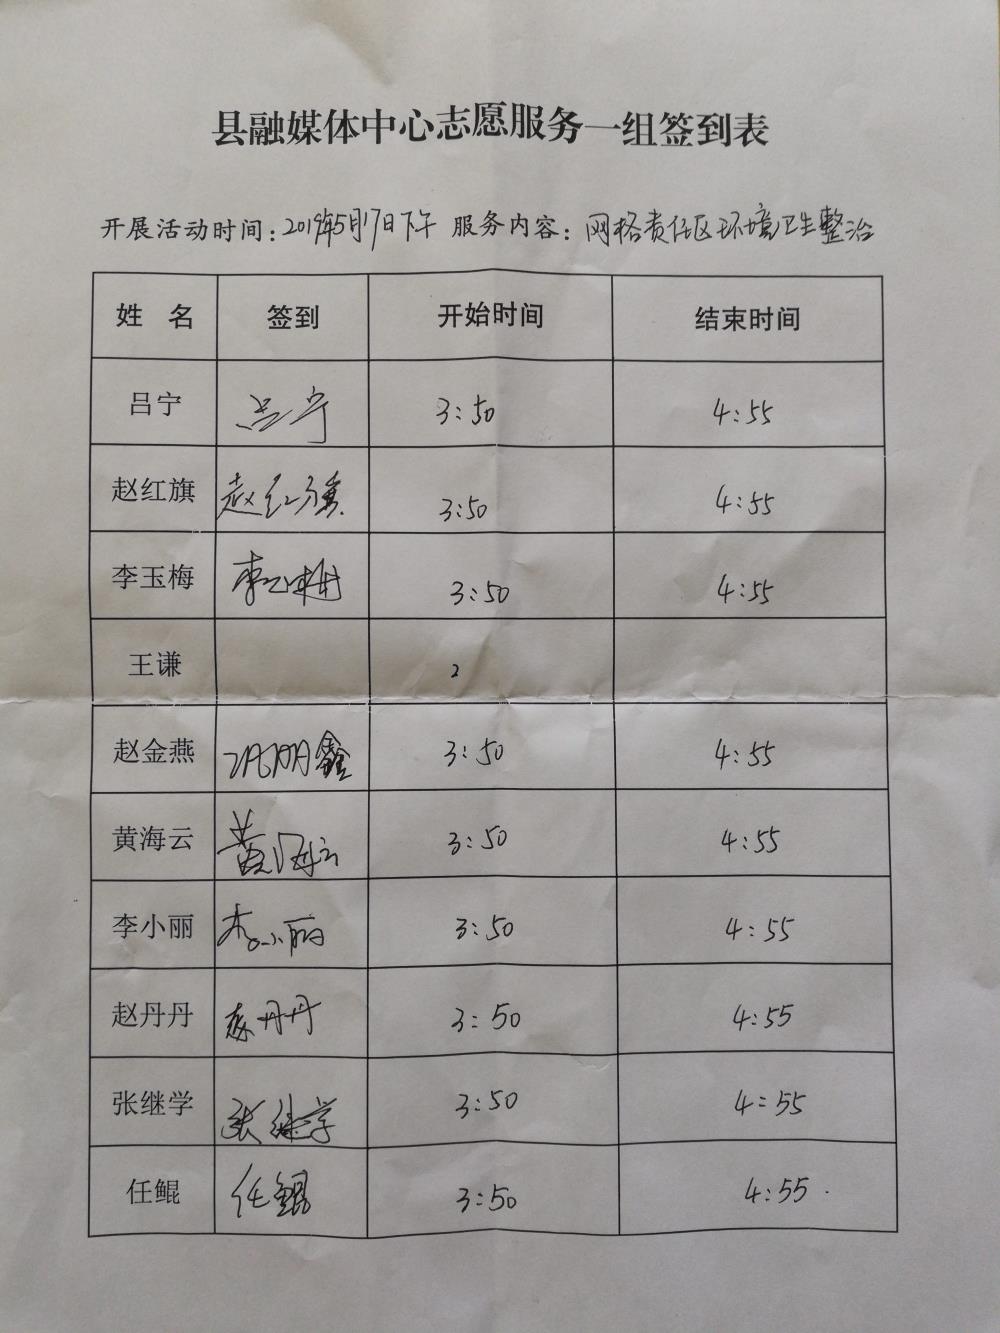 县融媒体中心志愿服务一组签到表
开展活动时间：2019年5月17日下午 服务内容：网格责任区环境卫生整治
姓 名 签到 开始时间 结束时间
吕宁 吕宁 3:50 4:55
赵红旗 赵红旗 3:50 4:55
李玉梅 李玉梅 3:50 4:55
王谦 2
赵金燕 3:50 4:55
黄海云 黄海云 3:50 4:55
李小丽 李小丽 3:50 4:55
赵丹丹 赵丹丹 3:50 4:55
张继学 张继学 3:50 4:55
任鲲 任鲲 3:50 4:55